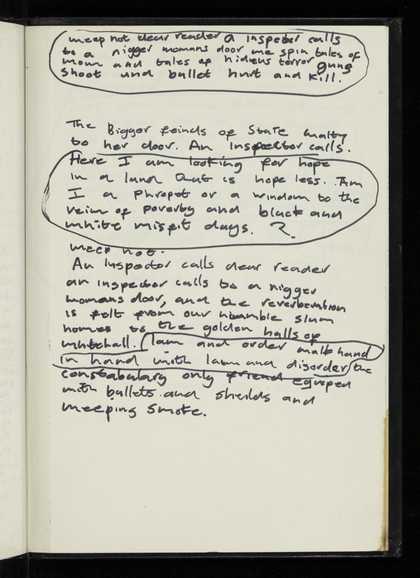 weep not dear reader a inspector calls
to a nigger womans door we spin tales of
woun and tales of hideus terror guns
shoot und bullet hurt and kill.
The Bigger feinds of State
to her door. An Inspector calls.
Here I am looking for hope
in a land that is hope less. Am
I a Phropet or a window to the
veiw of poverty and black and
white misfit days. ?
weep not.
An Inspector calls dear reader
an inspector calls to a nigger
womans door, and the reverberation
is felt from our humble slum
homes to the golden halls of
whitehall. law and order walk hand
in hand with law and disorder the
constabulary only friend equiped
with bullets and sheilds and
weeping smoke.